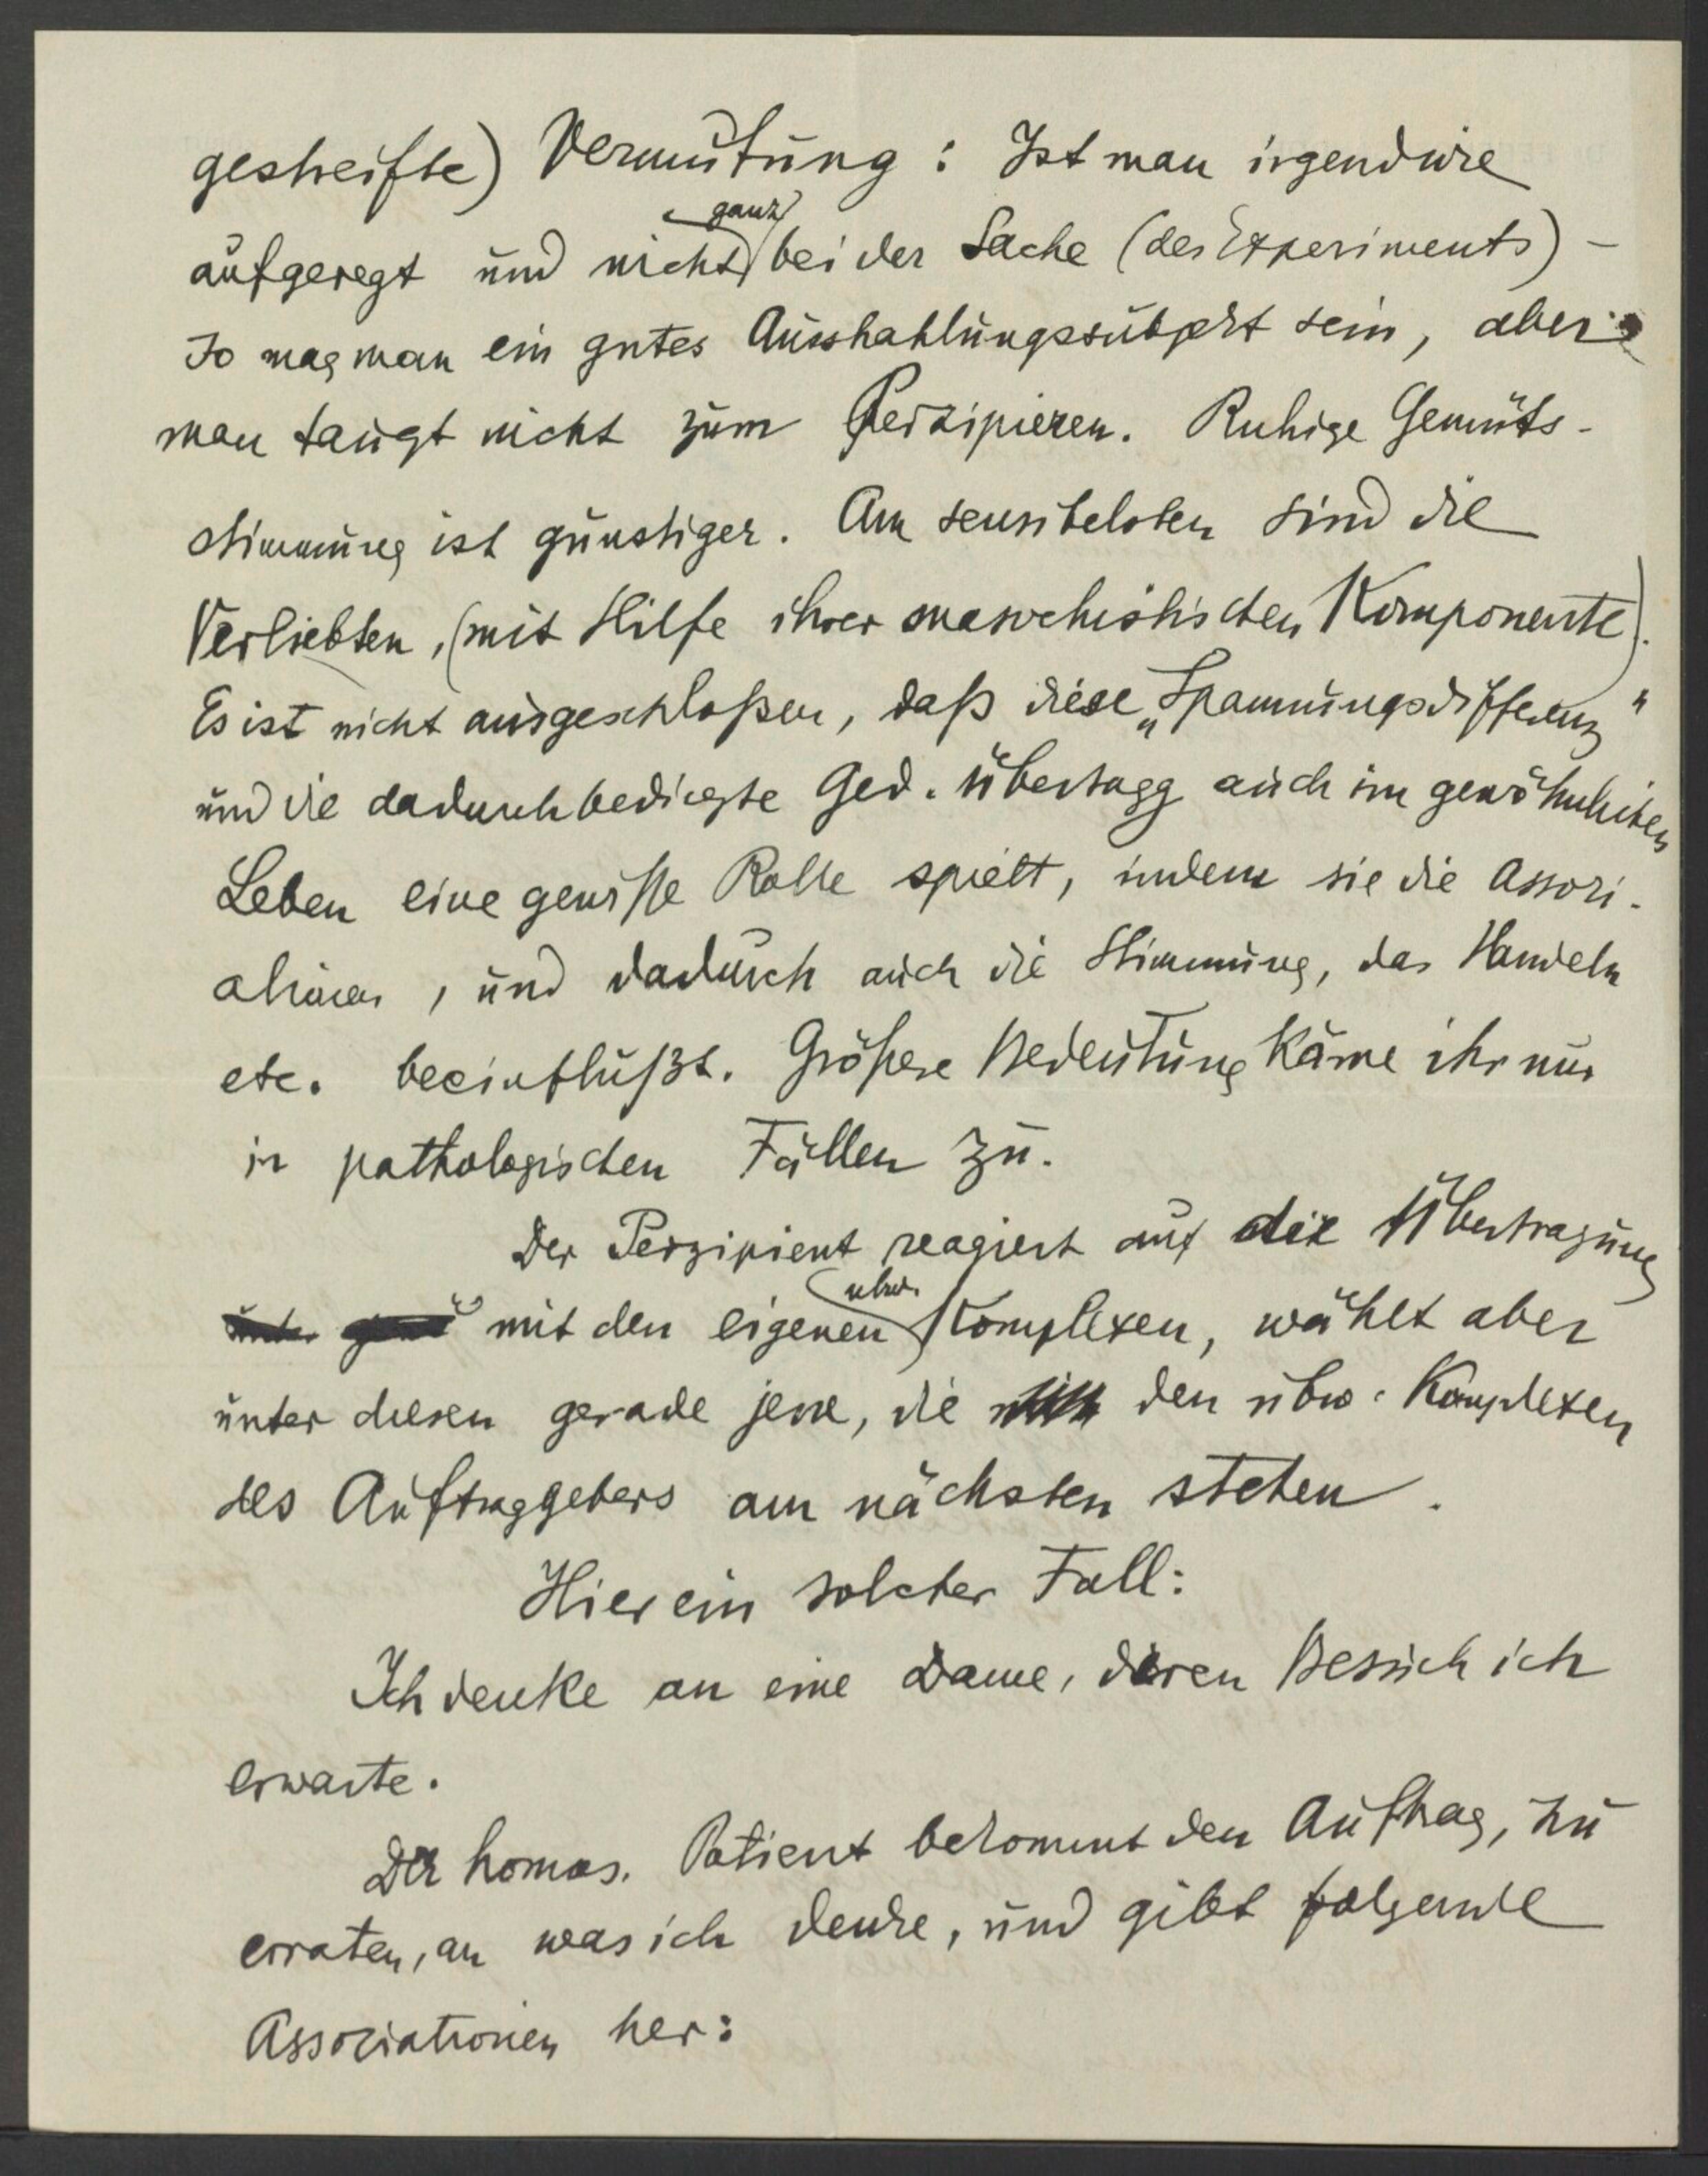 gestreifte) Vermutung: Ist man irgendwie
aufgeregt und nicht ganz bei der Sache (des Experiments) –
so mag man ein gutes Ausstrahlungssubjekt sein, aber
man taugt nicht zum Perzipieren. Ruhige Gemüts-
stimmung ist günstiger. Am sensibelsten sind die
Verliebten, (mit Hilfe ihrer masochistischen Komponente).
Es ist nicht ausgeschloßen, daß diese „Spannungsdifferenz"
und die dadurch bedingte Ged. übertragg auch im gewöhnlichen
Leben eine gewiße Rolle spielt, indem sie die Assozi-
ationen, und dadurch auch die Stimmung, das Handeln
etc. beeinflußt. Größere Bedeutung käme ihr nur
in pathologischen Fällen zu.
Der Perzipient reagiert auf die Übertragung
mit den eigenen ubw. Komplexen, wählt aber
unter diesen gerade jene, die den ubw. Komplexen
des Auftraggebers am nächsten stehen.
Hier ein solcher Fall:
Ich denke an eine Dame, deren Besuch ich
erwarte.
Der homos. Patient bekommt den Auftrag, zu
erraten, an was ich denke, und gibt folgende
Associationen her: